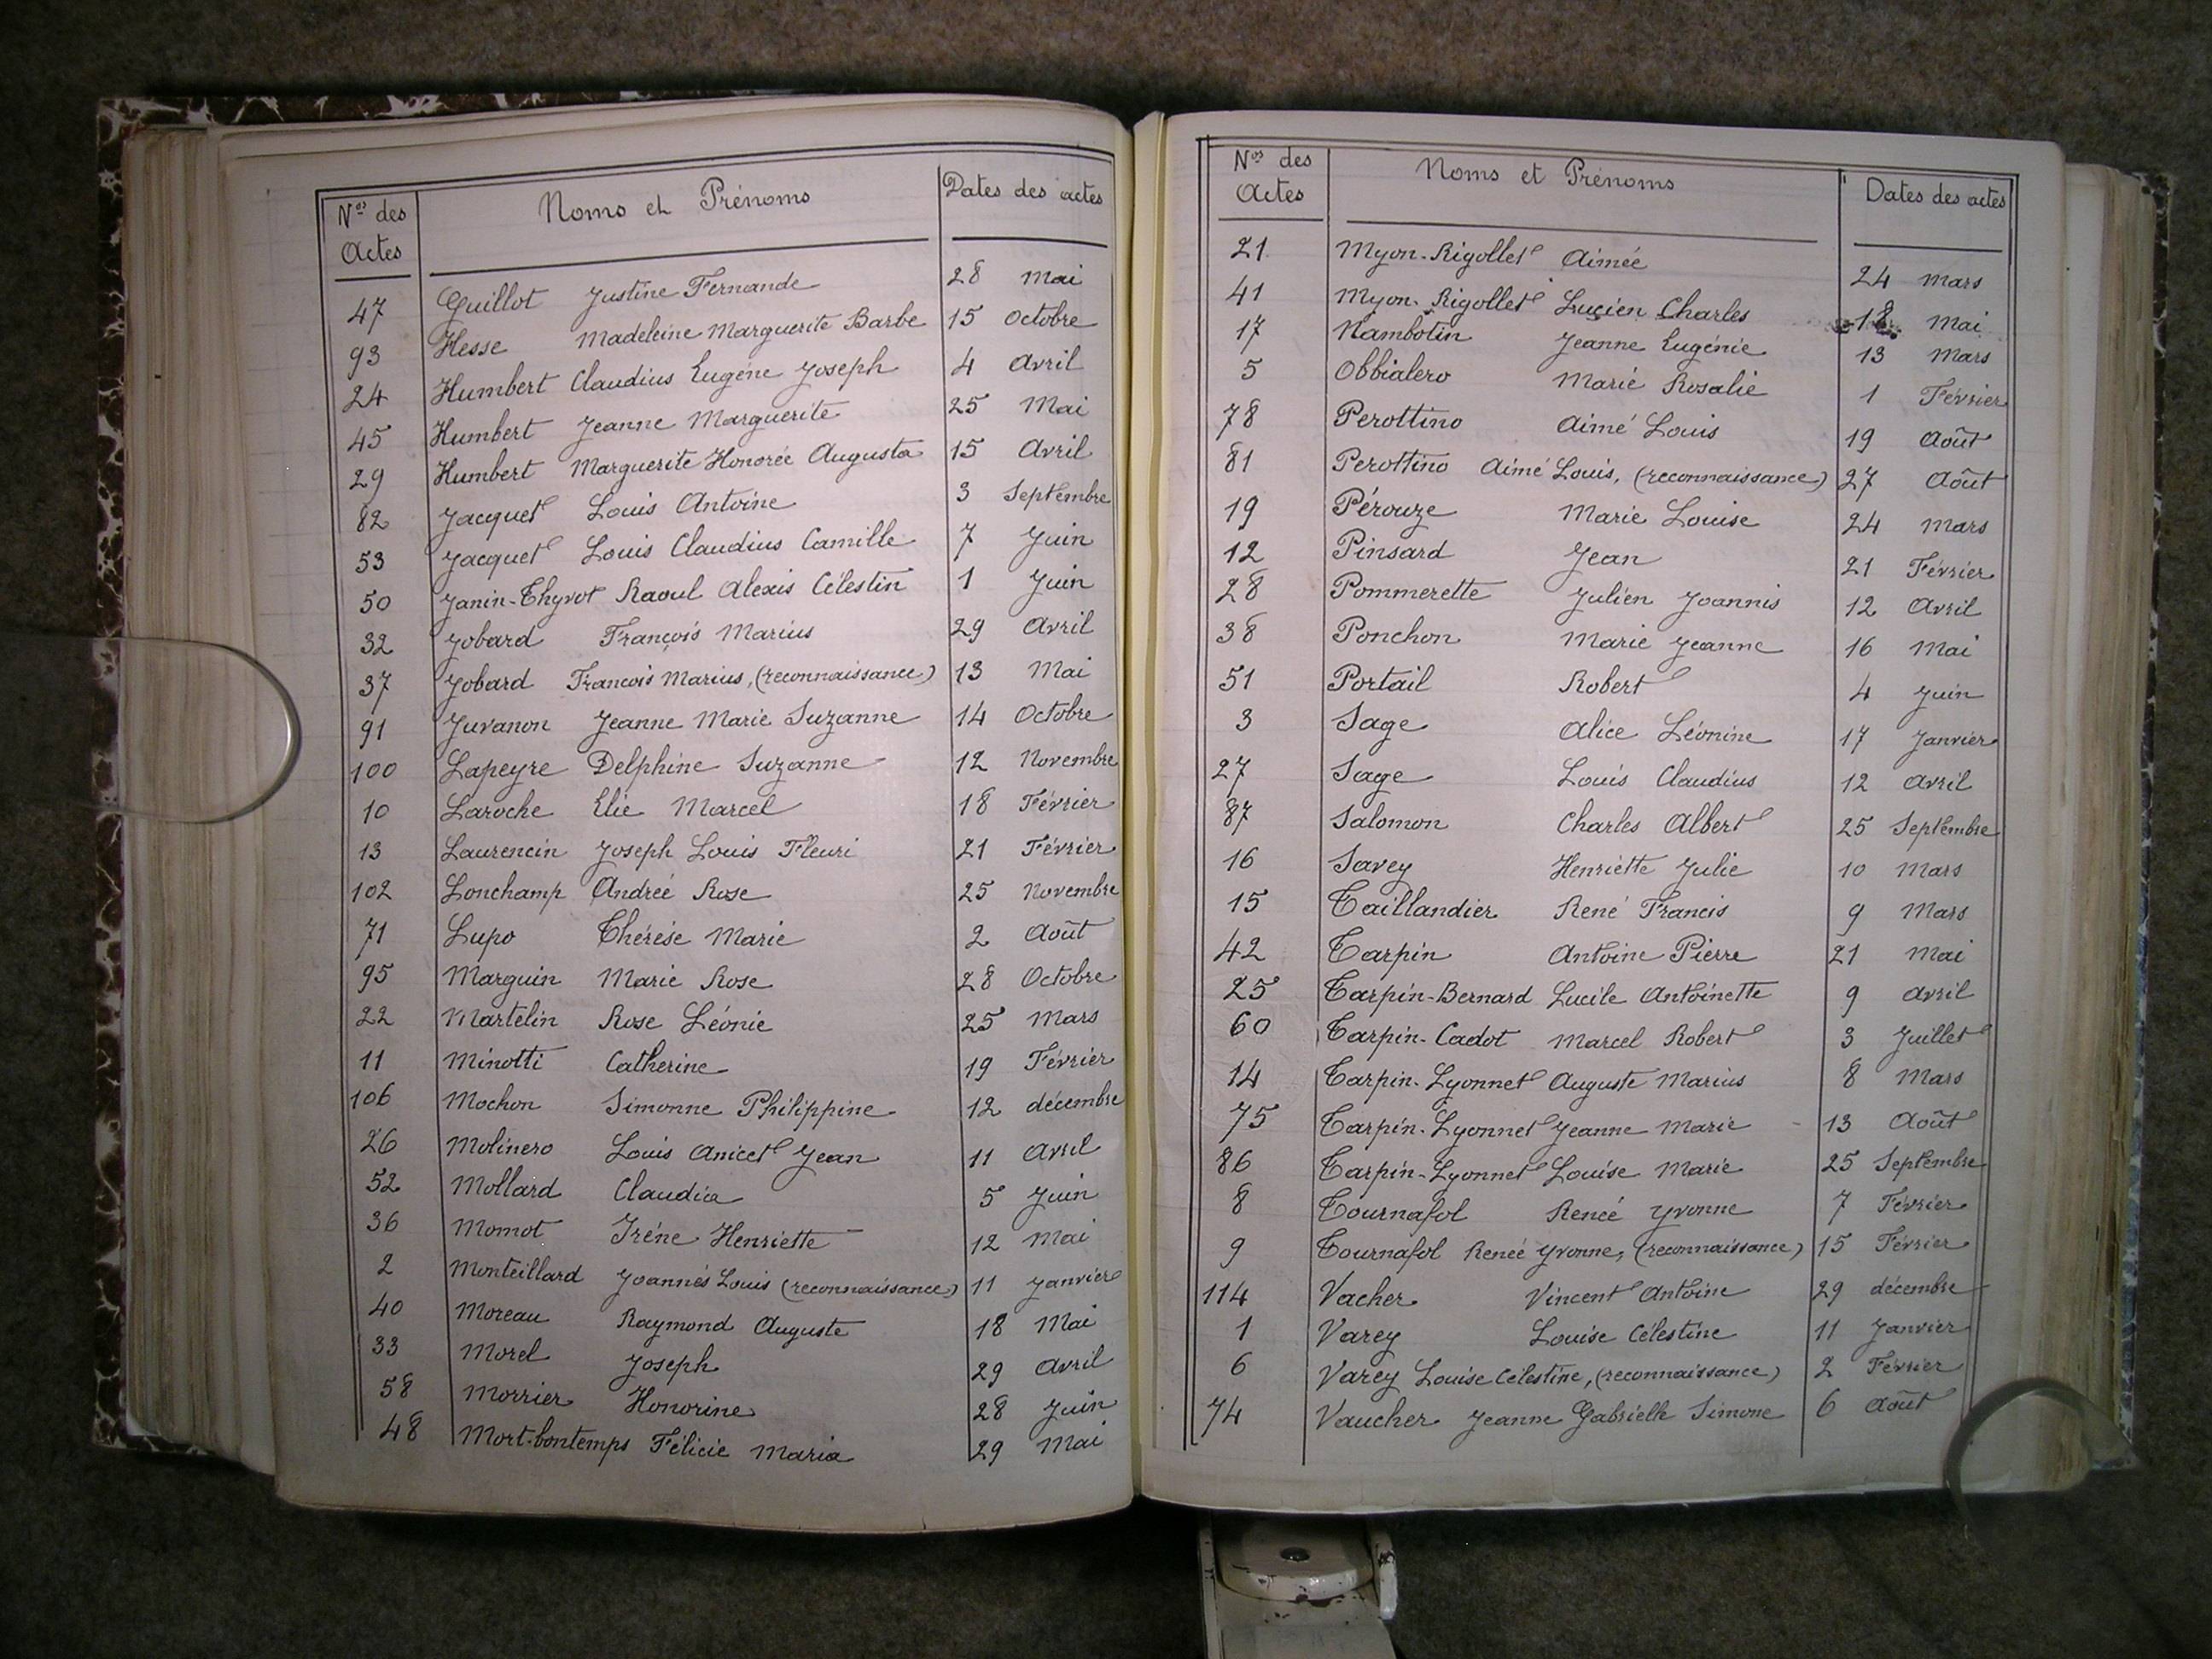 Nos des Actes Noms et Prénoms Dates des actes
47 Guillot Justine Fernande 28 Mai
93 Hesse Madeleine Marguerite Barbe 15 Octobre
24 Humbert Claudius Eugène Joseph 4 Avril
45 Humbert Jeanne Marguerite 25 Mai
29 Humbert Marguerite Honorée Augusta 15 Avril
82 Jacquet Louis Antoine 3 Septembre
53 Jacquet Louis Claudius Camille 7 Juin
50 Janin-Thyvot Raoul Alexis Célestin 1 Juin
32 Jobard François Marius 29 Avril
37 Jobard François Marius, (reconnaissance) 13 Mai
91 Juvanon Jeanne Marie Suzanne 14 Octobre
100 Lapeyre Delphine Suzanne 12 Novembre
10 Laroche Elie Marcel 18 Février
13 Laurencin Joseph Louis Fleuri 21 Février
102 Lonchamp Andréé Rose 25 Novembre
71 Lupo Thérèse Marie 2 Août
95 Marguin Marie Rose 28 Octobre
22 Martelin Rose Léonie 25 Mars
11 Minotti Catherine 19 Février
106 Mochon Simonne Philippine 12 décembre
26 Molinero Louis Anicet Jean 11 Avril
52 Mollard Claudia 5 Juin
36 Momot Irène Henriette 12 Mai
2 Monteillard Joannès Louis (reconnaissance) 11 Janvier
40 Moreau Raymond Auguste 18 Mai
33 Morel Joseph 29 Avril
58 Morrier Honorine 28 Juin
48 Mort-bontemps Félicie Maria 29 Mai
Nos des Actes Noms et Prénoms Dates des actes
21 Myon-Rigollet Aimée 24 Mars
41 Myon-Rigollet Lucien Charles 18 Mai
17 Nambotin Jeanne Eugénie 13 Mars
5 Obbialero Marie Rosalie 1 Février
78 Perottino Aimé Louis 19 Août
81 Perottino Aimé Louis, (reconnaissance) 27 Août
19 Pérouze Marie Louise 24 Mars
12 Pinsard Jean 21 Février
28 Pommerette Julien Joannis 12 Avril
38 Ponchon Marie Jeanne 16 Mai
51 Portail Robert 4 Juin
3 Sage Alice Léonine 17 Janvier
27 Sage Louis Claudius 12 Avril
87 Salomon Charles Albert 25 Septembre
16 Savey Henriette Julie 10 Mars
15 Taillandier René Francis 9 Mars
42 Tarpin Antoine Pierre 21 Mai
25 Tarpin-Bernard Lucile Antoinette 9 Avril
60 Tarpin-Cadot Marcel Robert 3 Juillet
14 Tarpin-Lyonnet Auguste Marius 8 Mars
75 Tarpin-Lyonnet Jeanne Marie 13 Août
86 Tarpin-Lyonnet Louise Marie 25 Septembre
8 Tournafol Renée Yvonne 7 Février
9 Tournafol Renée Yvonne, (reconnaissance) 15 Février
114 Vacher Vincent Antoine 29 décembre
1 Varey Louise Célestine 11 Janvier
6 Varey Louise Célestine, (reconnaissance) 2 Février
74 Vaucher Jeanne Gabrielle Simone 6 Août